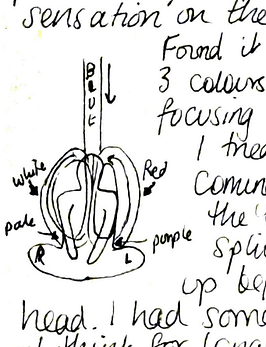 'sensation' on the
Found it
3 colours
focusing
I tried
the
up
head. I had some
think for
BLUE
White
Red
pale
purple
R
L